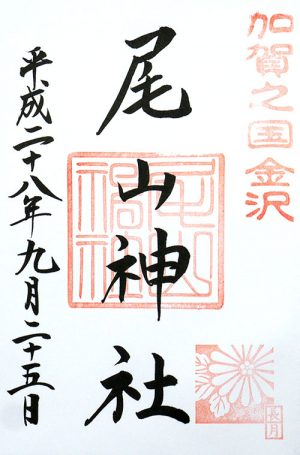 加賀之国金沢
尾山神社
尾山神社
平成二十八年九月二十五日
長月